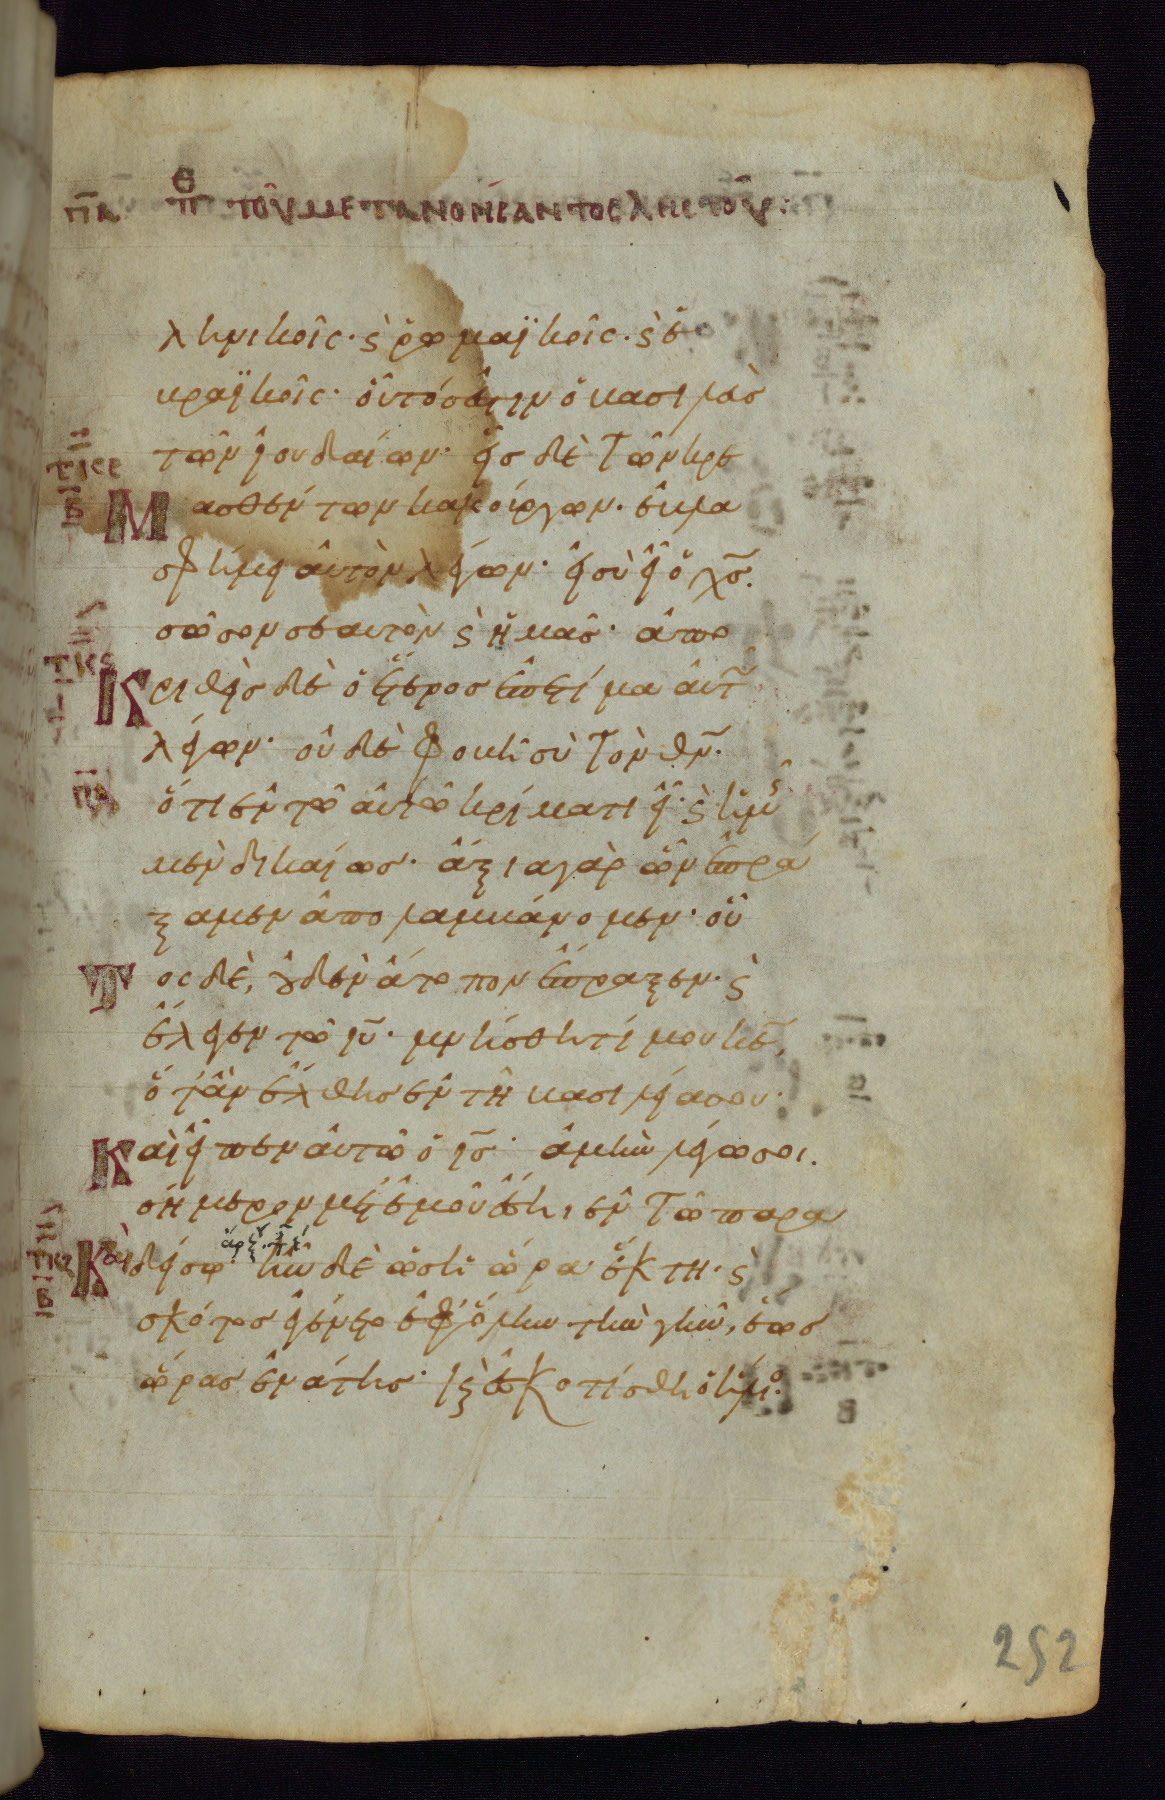 πα θ̅π̅ τοῦ μετανοήσαντος ληστοῦ:
λληνικοῖς· ϛ̀ ῥωμαϊκοῖς· ϛ̀ ἑ
βραϊκοῖς· οὗτός ἐστιν ὁ βασιλεὺς
τῶν ἰουδαίων· εἷς δὲ τῶν κρε
τκε
β
Μασθέντων κακούργων· ἐβλα
σφήμει αὐτὸν λέγων· εἰ σὺ εἶ ὁ χ̅ς̅.
σῶσον σεαυτὸν ϛ̀ ἡμᾶς· ἀπο
τκϛ
ι
Κριθεὶς δὲ ὁ ἕτερος ἐπετίμα αὐτ͂
λέγων· οὐδὲ φοβῆ σὺ τὸν θ̅ν̅.
πα
ὅτι ἐν τῶ αὐτῶ κρίματι εἶ· ϛ̀ ἡμεῖς
μὲν δικαίως· ἄξια γὰρ ὧν ἐπρά
ξαμεν ἀπολαμβάνομεν· οὗ
Τος δὲ, οὐδὲν ἄτοπον ἔπραξεν· ϛ̀
ἔλεγεν τῶ ι̅υ̅· μνήσθητί μου κ̅ε̅,
ὅταν ἔλθης ἐν τῆ βασιλείασου·
Καὶ εἶπεν αὐτῶ ὁ ι̅ς̅· ἀμὴν λέγω σοι.
σήμερον μετ' ἐμοῦ ἔση ἐν τῶ παρα
τκζ
β
Καὶ δείσω· ἦν δὲ ὡσεὶ ὥρα ἕκτη· ϛ̀
σκότος ἐγένετο ἐφ' ὅλην τὴν γῆν, ἕως
ὥρας ἐνάτης· ϛ̀ ἐσκοτίσθη ὁ ἥλιος·
252